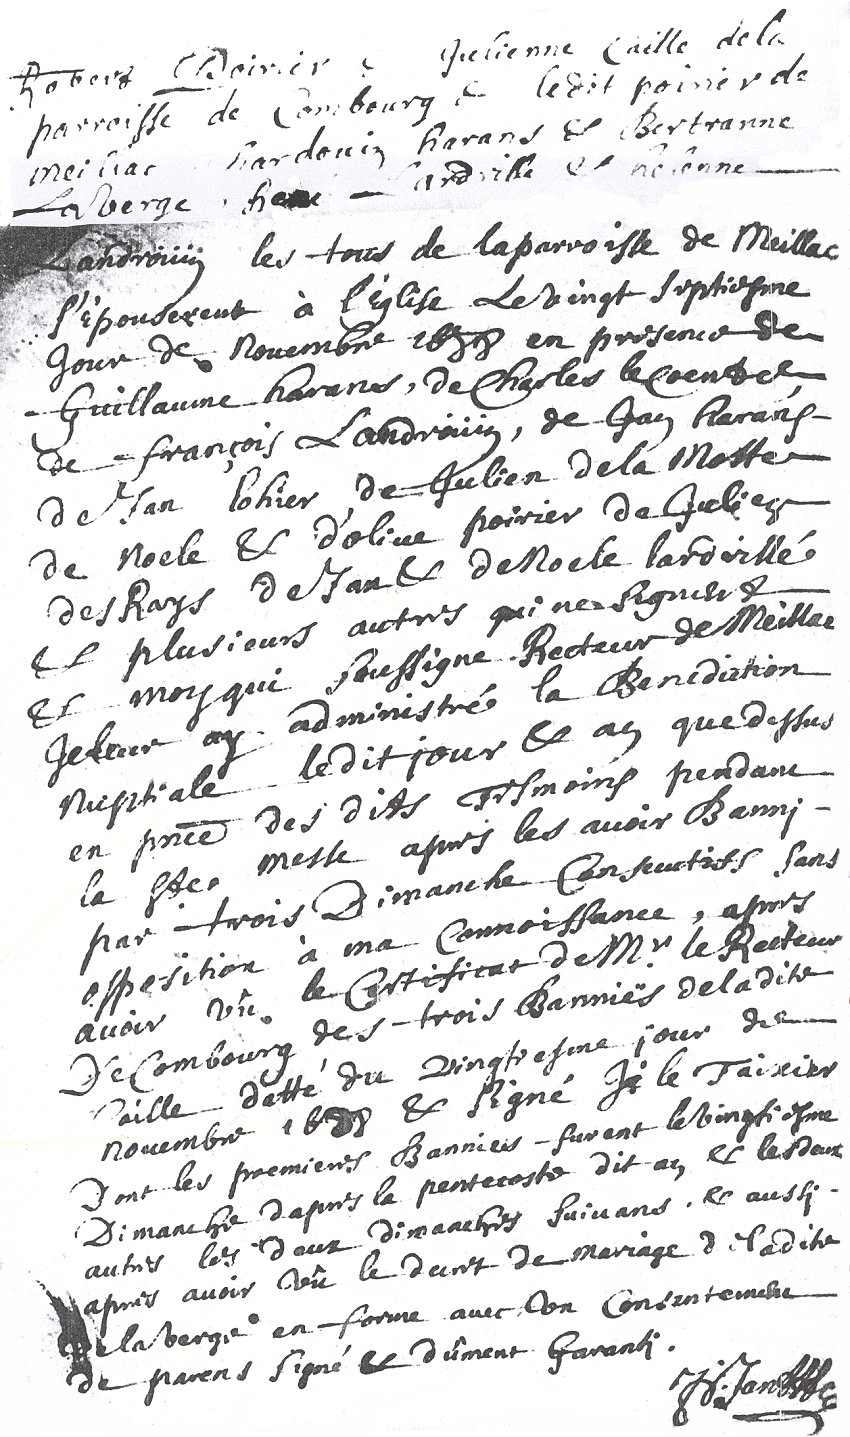 Robert Poirier & Julienne Caille dela
parroisse de Combourg & ledit poirier de
Meillac hardouin harans & Bertranne
Laverge, Lardville & helenne
Landrouin les tous de la parroisse de Meillac
s'épouserent à l'Église Le vingt septiesme
Jour de Novembre en presence de
Guillaume harans, de Charles le
de françois Landrouin, de Jan harans
de Jan lohier, de Julien dela Motte
de Noele & d'olive poirier de Julien
des Rays de Jan & de Noele lardville
& plusieurs autres qui ne signent
& moy qui soussigne Recteur de Meillac
Jeleur ay administré la Benediction
Nuptiale ledit jour & an que dessus
en pnce des dits Tesmoins pendant
la Ste messe aprés les avoir Banni
par trois Dimanche Consecutifs sans
opposition à ma Connoissance, aprés
avoir vû le Certificat de Mr le Recteur
De Combourg des trois Banniës deladite
Caille datté du vingtiesme jour de
novembre & signé le Taixier
Dont les premieres Bannies furent le vingtiesme
Dimanche d'aprés la pentecoste dit an & les deux
autres les deux dimanches suivans. & aussi
aprés avoir vû le decret de mariage deladite
Delaverge en forme avec un Consentement
de parens signé & dûment Garanti.